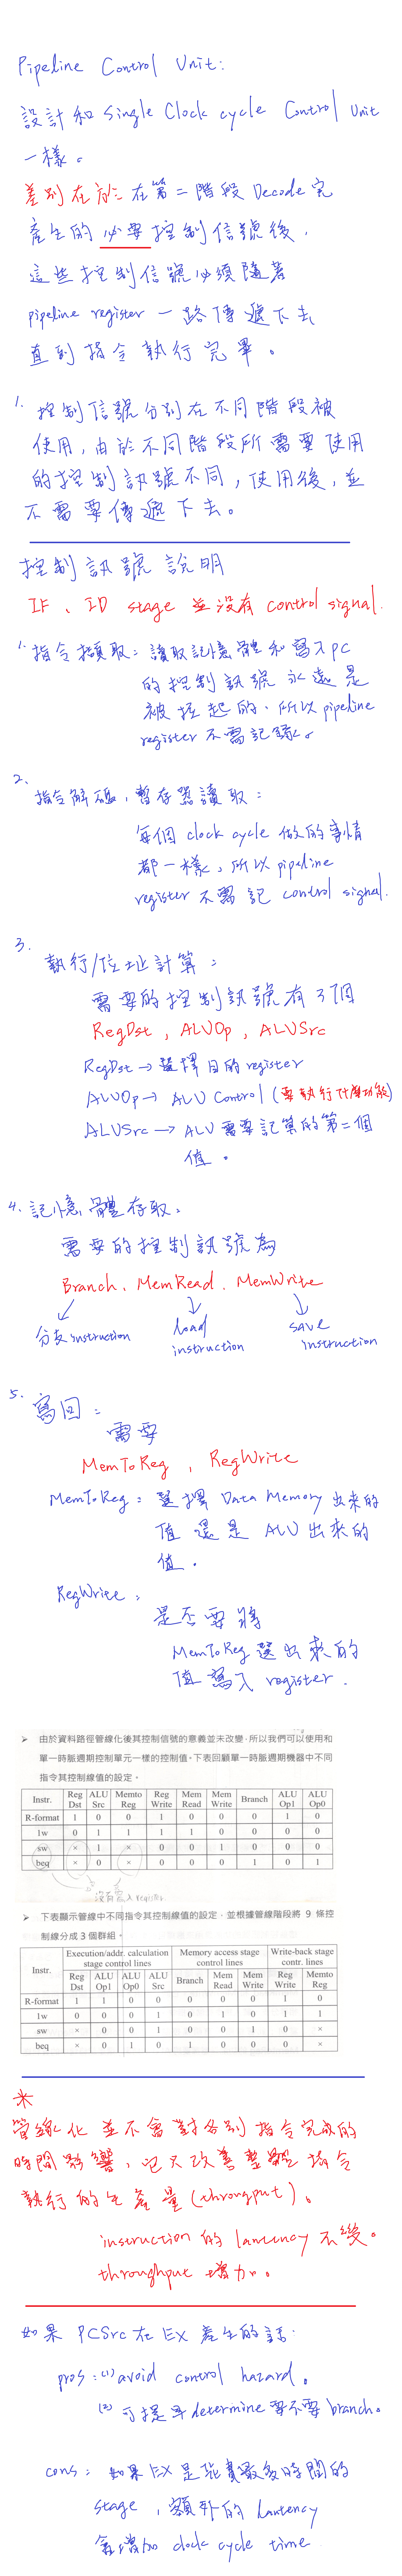 Pipeline Control Unit:
設計和 Single Clock cycle Control Unit
一樣。
差別在於在第二階段 Decode 完
產生的必要控制信號後,
這些控制信號必須隨著
pipeline register 一路傳遞下去
直到指令執行完畢。
1. 控制信號分別在不同階段被
使用,由於不同階段所需要使用
的控制訊號不同,使用後,並
不需要傳遞下去。
控制訊號說明
IF、ID stage 並沒有 control signal.
1. 指令擷取:讀取記憶體和寫入PC
的控制訊號永遠是
被拉起的,所以 pipeline
register 不需記錄。
2. 指令解碼,暫存器讀取:
每個 clock cycle 做的事情
都一樣,所以 pipeline
register 不需記 control signal.
3. 執行/位址計算:
需要的控制訊號有3個
RegDst, ALUOp, ALUSrc
RegDst → 選擇目的register
ALUOp → ALU Control (要執行什麼功能)
ALUSrc → ALU 需要計算的第二個
值。
4. 記憶體存取:
需要的控制訊號為
Branch、MemRead、MemWrite
分支 instruction load instruction save instruction
5. 寫回:
需要
MemToReg, RegWrite
MemToReg: 選擇 Data Memory 出來的
值還是 ALU 出來的
值。
RegWrite:
是否要將
MemToReg 選出來的
值寫入 register.
➢ 由於資料路徑管線化後其控制信號的意義並未改變,所以我們可以使用和
單一時脈週期控制單元一樣的控制值。下表回顧單一時脈週期機器中不同
指令其控制線值的設定。
Instr. Reg Dst ALU Src Memto Reg Reg Write Mem Read Mem Write Branch ALU Op1 ALU Op0
R-format 1 0 0 1 0 0 0 1 0
lw 0 1 1 1 1 0 0 0 0
sw × 1 × 0 0 1 0 0 0
beq × 0 × 0 0 0 1 0 1
沒有寫入 register
➢ 下表顯示管線中不同指令其控制線值的設定,並根據管線階段將 9 條控
制線分成 3 個群組。
Instr. Execution/addr. calculation stage control lines Memory access stage control lines Write-back stage contr. lines
Reg Dst ALU Op1 ALU Op0 ALU Src Branch Mem Read Mem Write Reg Write Memto Reg
R-format 1 1 0 0 0 0 0 1 0
lw 0 0 0 1 0 1 0 1 1
sw × 0 0 1 0 0 1 0 ×
beq × 0 1 0 1 0 0 0 ×
※
管線化並不會對各別指令完成的
時間影響,它只改善整體指令
執行的生產量(throughput)。
instruction 的 lantency 不變。
throughput 增加。
如果 PCSrc 在 EX 產生的話:
pros: (1) avoid control hazard。
(2) 可提早 determine 要不要 branch。
cons: 如果 EX 是花費最多時間的
stage,額外的 lantency
會增加 clock cycle time